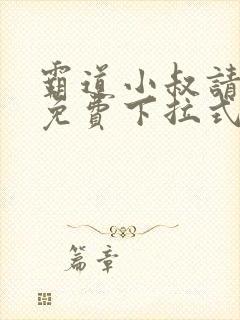 霸道小叔請
免費下拉式
篇章